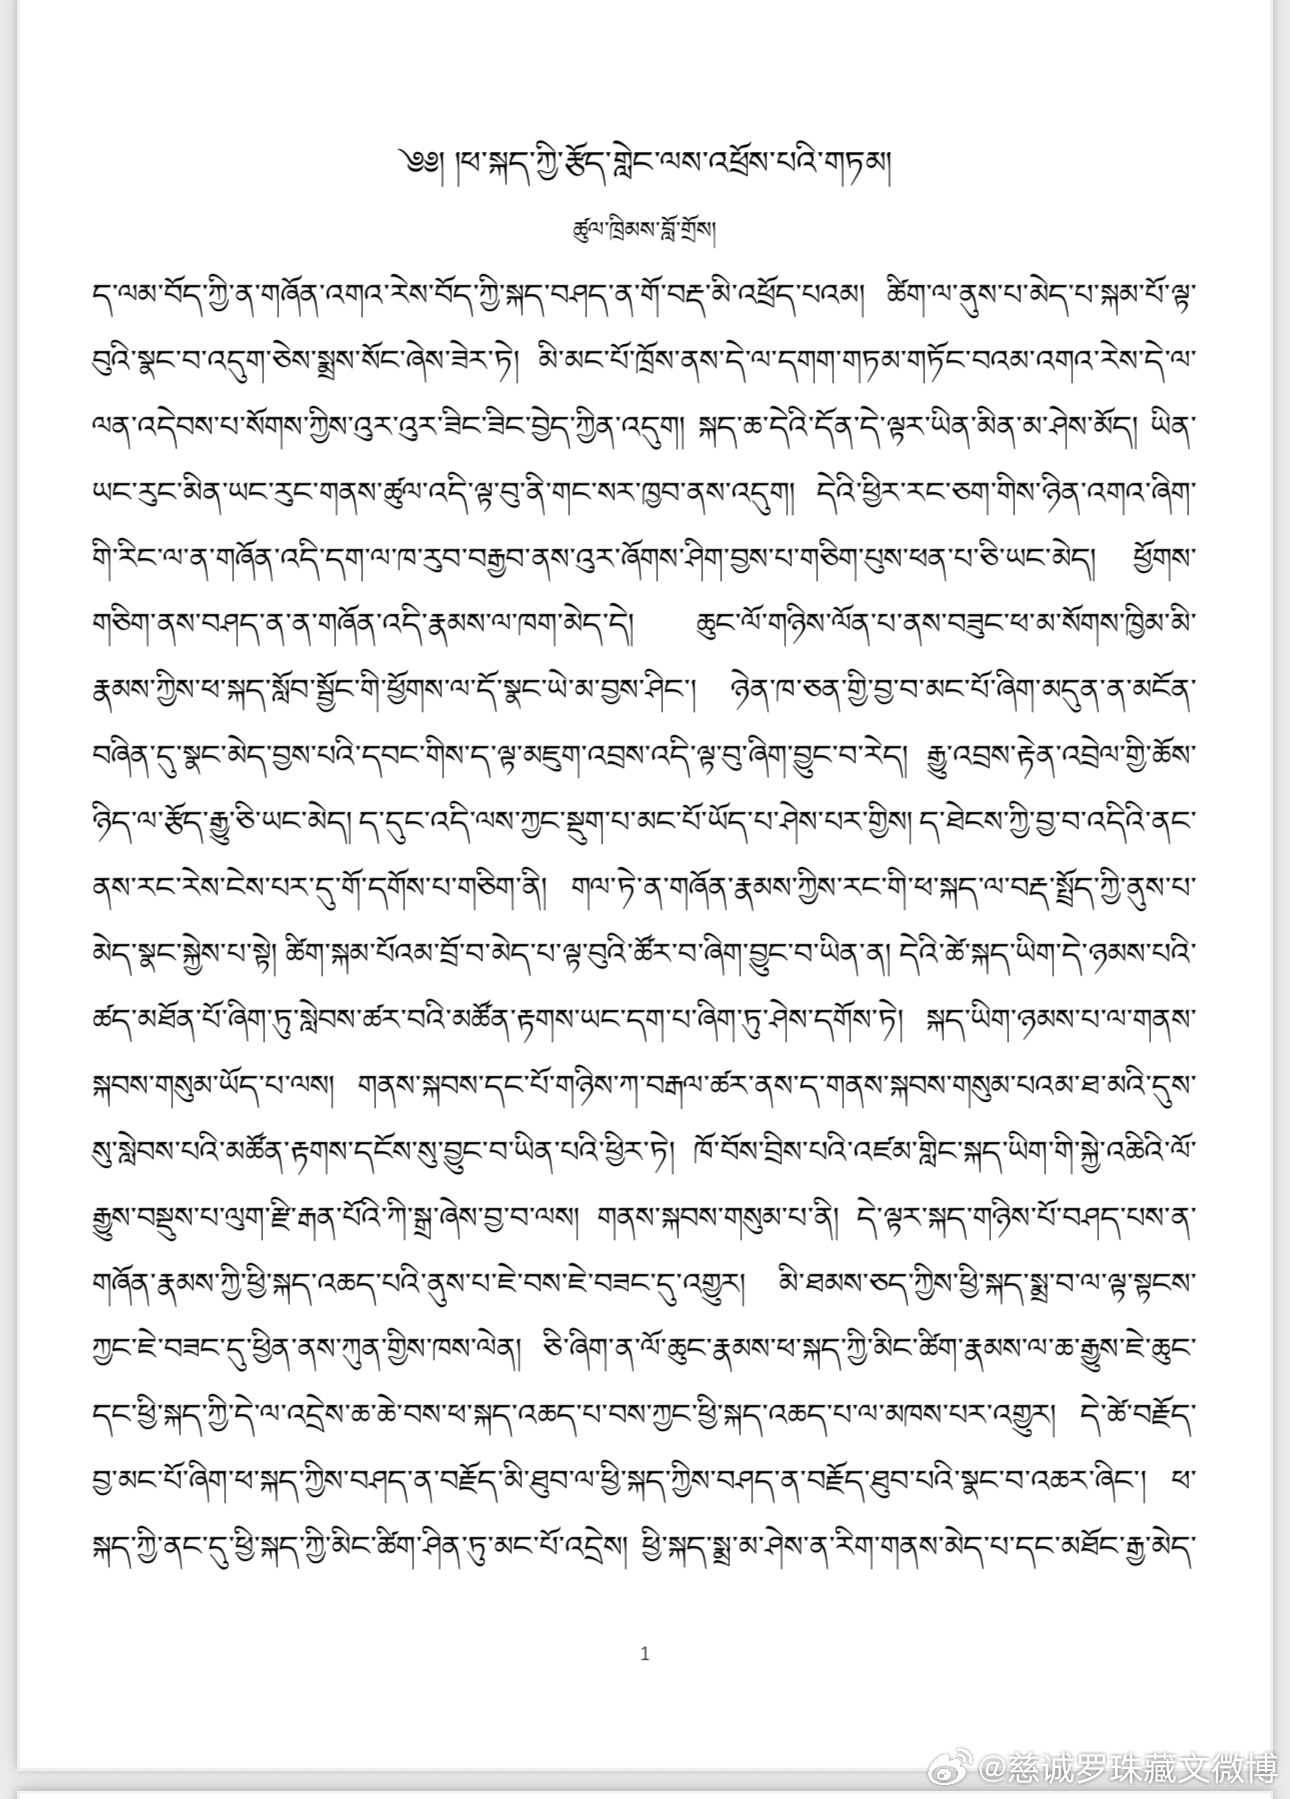 ༄༅། །ཕ་སྐད་ཀྱི་རྩོད་གླེང་ལས་འཕྲོས་པའི་གཏམ།
ཚུལ་ཁྲིམས་བློ་གྲོས།
ད་ལམ་བོད་ཀྱི་ན་གཞོན་འགའ་རེས་བོད་ཀྱི་སྐད་བཤད་ན་གོ་བརྡ་མི་འཕྲོད་པའམ། ཚིག་ལ་ནུས་པ་མེད་པ་སྐམ་པོ་ལྟ་
བུའི་སྣང་བ་འདུག་ཅེས་སྨྲས་སོང་ཞེས་ཟེར་ཏེ། མི་མང་པོ་ཁྲོས་ནས་དེ་ལ་དགག་གཏམ་གཏོང་བའམ་འགའ་རེས་དེ་ལ་
ལན་འདེབས་པ་སོགས་ཀྱིས་འུར་འུར་ཟིང་ཟིང་བྱེད་ཀྱིན་འདུག། སྐད་ཆ་དེའི་དོན་དེ་ལྟར་ཡིན་མིན་མ་ཤེས་མོད། ཡིན་
ཡང་རུང་མིན་ཡང་རུང་གནས་ཚུལ་འདི་ལྟ་བུ་ནི་གང་སར་ཁྱབ་ནས་འདུག། དེའི་ཕྱིར་རང་ཅག་གིས་ཉིན་འགའ་ཞིག་
གི་རིང་ལ་ན་གཞོན་འདི་དག་ལ་ཁ་རུབ་བརྒྱབ་ནས་འུར་ཞོགས་ཤིག་བྱས་པ་གཅིག་པུས་ཕན་པ་ཅི་ཡང་མེད། ཕྱོགས་
གཅིག་ནས་བཤད་ན་ན་གཞོན་འདི་རྣམས་ལ་ཁག་མེད་དེ། ཆུང་ལོ་གཉིས་ལོན་པ་ནས་བཟུང་ཕ་མ་སོགས་ཁྱིམ་མི་
རྣམས་ཀྱིས་ཕ་སྐད་སློབ་སྦྱོང་གི་ཕྱོགས་ལ་དོ་སྣང་ཡེ་མ་བྱས་ཤིང་། ཉེན་ཁ་ཅན་གྱི་བྱ་བ་མང་པོ་ཞིག་མདུན་ན་མངོན་
བཞིན་དུ་སྣང་མེད་བྱས་པའི་དབང་གིས་ད་ལྟ་མཇུག་འབྲས་འདི་ལྟ་བུ་ཞིག་བྱུང་བ་རེད། རྒྱུ་འབྲས་རྟེན་འབྲེལ་གྱི་ཆོས་
ཉིད་ལ་རྩོད་རྒྱུ་ཅི་ཡང་མེད། ད་དུང་འདི་ལས་ཀྱང་སྡུག་པ་མང་པོ་ཡོད་པ་ཤེས་པར་གྱིས། ད་ཐེངས་ཀྱི་བྱ་བ་འདིའི་ནང་
ནས་རང་རེས་ངེས་པར་དུ་གོ་དགོས་པ་གཅིག་ནི། གལ་ཏེ་ན་གཞོན་རྣམས་ཀྱིས་རང་གི་ཕ་སྐད་ལ་བརྡ་སྤྲོད་ཀྱི་ནུས་པ་
མེད་སྣང་སྐྱེས་པ་སྟེ། ཚིག་སྐམ་པོའམ་བྲོ་བ་མེད་པ་ལྟ་བུའི་ཚོར་བ་ཞིག་བྱུང་བ་ཡིན་ན། དེའི་ཚེ་སྐད་ཡིག་དེ་ཉམས་པའི་
ཚད་མཐོན་པོ་ཞིག་ཏུ་སླེབས་ཚར་བའི་མཚོན་རྟགས་ཡང་དག་པ་ཞིག་ཏུ་ཤེས་དགོས་ཏེ། སྐད་ཡིག་ཉམས་པ་ལ་གནས་
སྐབས་གསུམ་ཡོད་པ་ལས། གནས་སྐབས་དང་པོ་གཉིས་ཀ་བརྒལ་ཚར་ནས་ད་གནས་སྐབས་གསུམ་པའམ་ཐ་མའི་དུས་
སུ་སླེབས་པའི་མཚོན་རྟགས་དངོས་སུ་བྱུང་བ་ཡིན་པའི་ཕྱིར་ཏེ། ཁོ་བོས་བྲིས་པའི་འཛམ་གླིང་སྐད་ཡིག་གི་སྐྱེ་འཆིའི་ལོ་
རྒྱུས་བསྡུས་པ་ལུག་རྫི་རྒན་པོའི་ཀི་སྒྲ་ཞེས་བྱ་བ་ལས། གནས་སྐབས་གསུམ་པ་ནི། དེ་ལྟར་སྐད་གཉིས་པོ་བཤད་པས་ན་
གཞོན་རྣམས་ཀྱི་ཕྱི་སྐད་འཆད་པའི་ནུས་པ་ཇེ་བས་ཇེ་བཟང་དུ་འགྱུར། མི་ཐམས་ཅད་ཀྱིས་ཕྱི་སྐད་སྨྲ་བ་ལ་ལྟ་སྟངས་
ཀྱང་ཇེ་བཟང་དུ་ཕྱིན་ནས་ཀུན་གྱིས་ཁས་ལེན། ཅི་ཞིག་ན་ལོ་ཆུང་རྣམས་ཕ་སྐད་ཀྱི་མིང་ཚིག་རྣམས་ལ་ཆ་རྒྱུས་ཇེ་ཆུང་
དང་ཕྱི་སྐད་ཀྱི་དེ་ལ་འདྲེས་ཆ་ཆེ་བས་ཕ་སྐད་འཆད་པ་བས་ཀྱང་ཕྱི་སྐད་འཆད་པ་ལ་མཁས་པར་འགྱུར། དེ་ཚེ་བརྗོད་
བྱ་མང་པོ་ཞིག་ཕ་སྐད་ཀྱིས་བཤད་ན་བརྗོད་མི་ཐུབ་ལ་ཕྱི་སྐད་ཀྱིས་བཤད་ན་བརྗོད་ཐུབ་པའི་སྣང་བ་འཆར་ཞིང་། ཕ་
སྐད་ཀྱི་ནང་དུ་ཕྱི་སྐད་ཀྱི་མིང་ཚིག་ཤིན་ཏུ་མང་པོ་འདྲེས། ཕྱི་སྐད་སྨྲ་མ་ཤེས་ན་རིག་གནས་མེད་པ་དང་མཐོང་རྒྱ་མེད་
1
@慈诚罗珠藏文微博